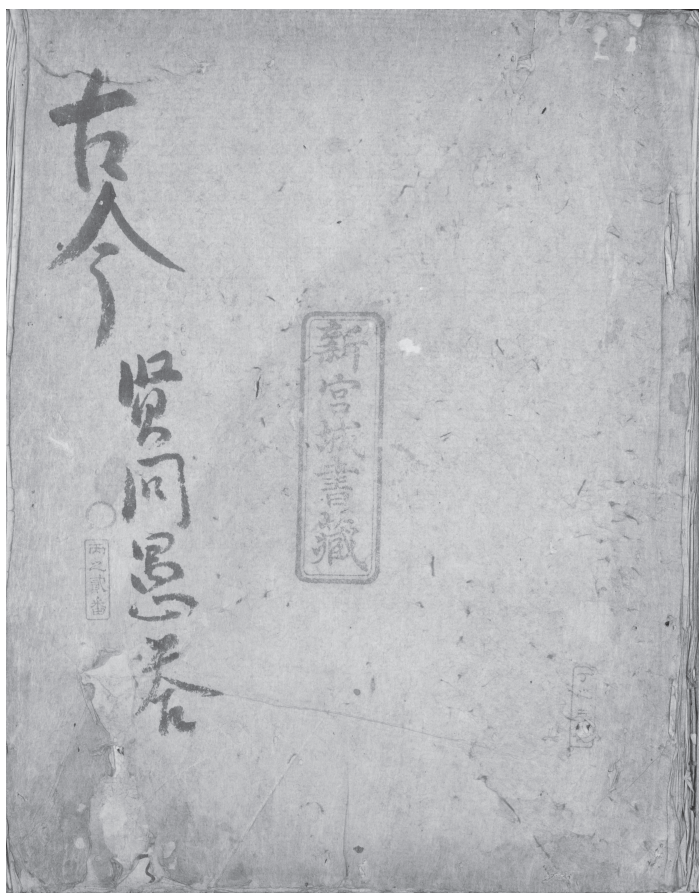 古今
賢問愚答
新宮城書藏